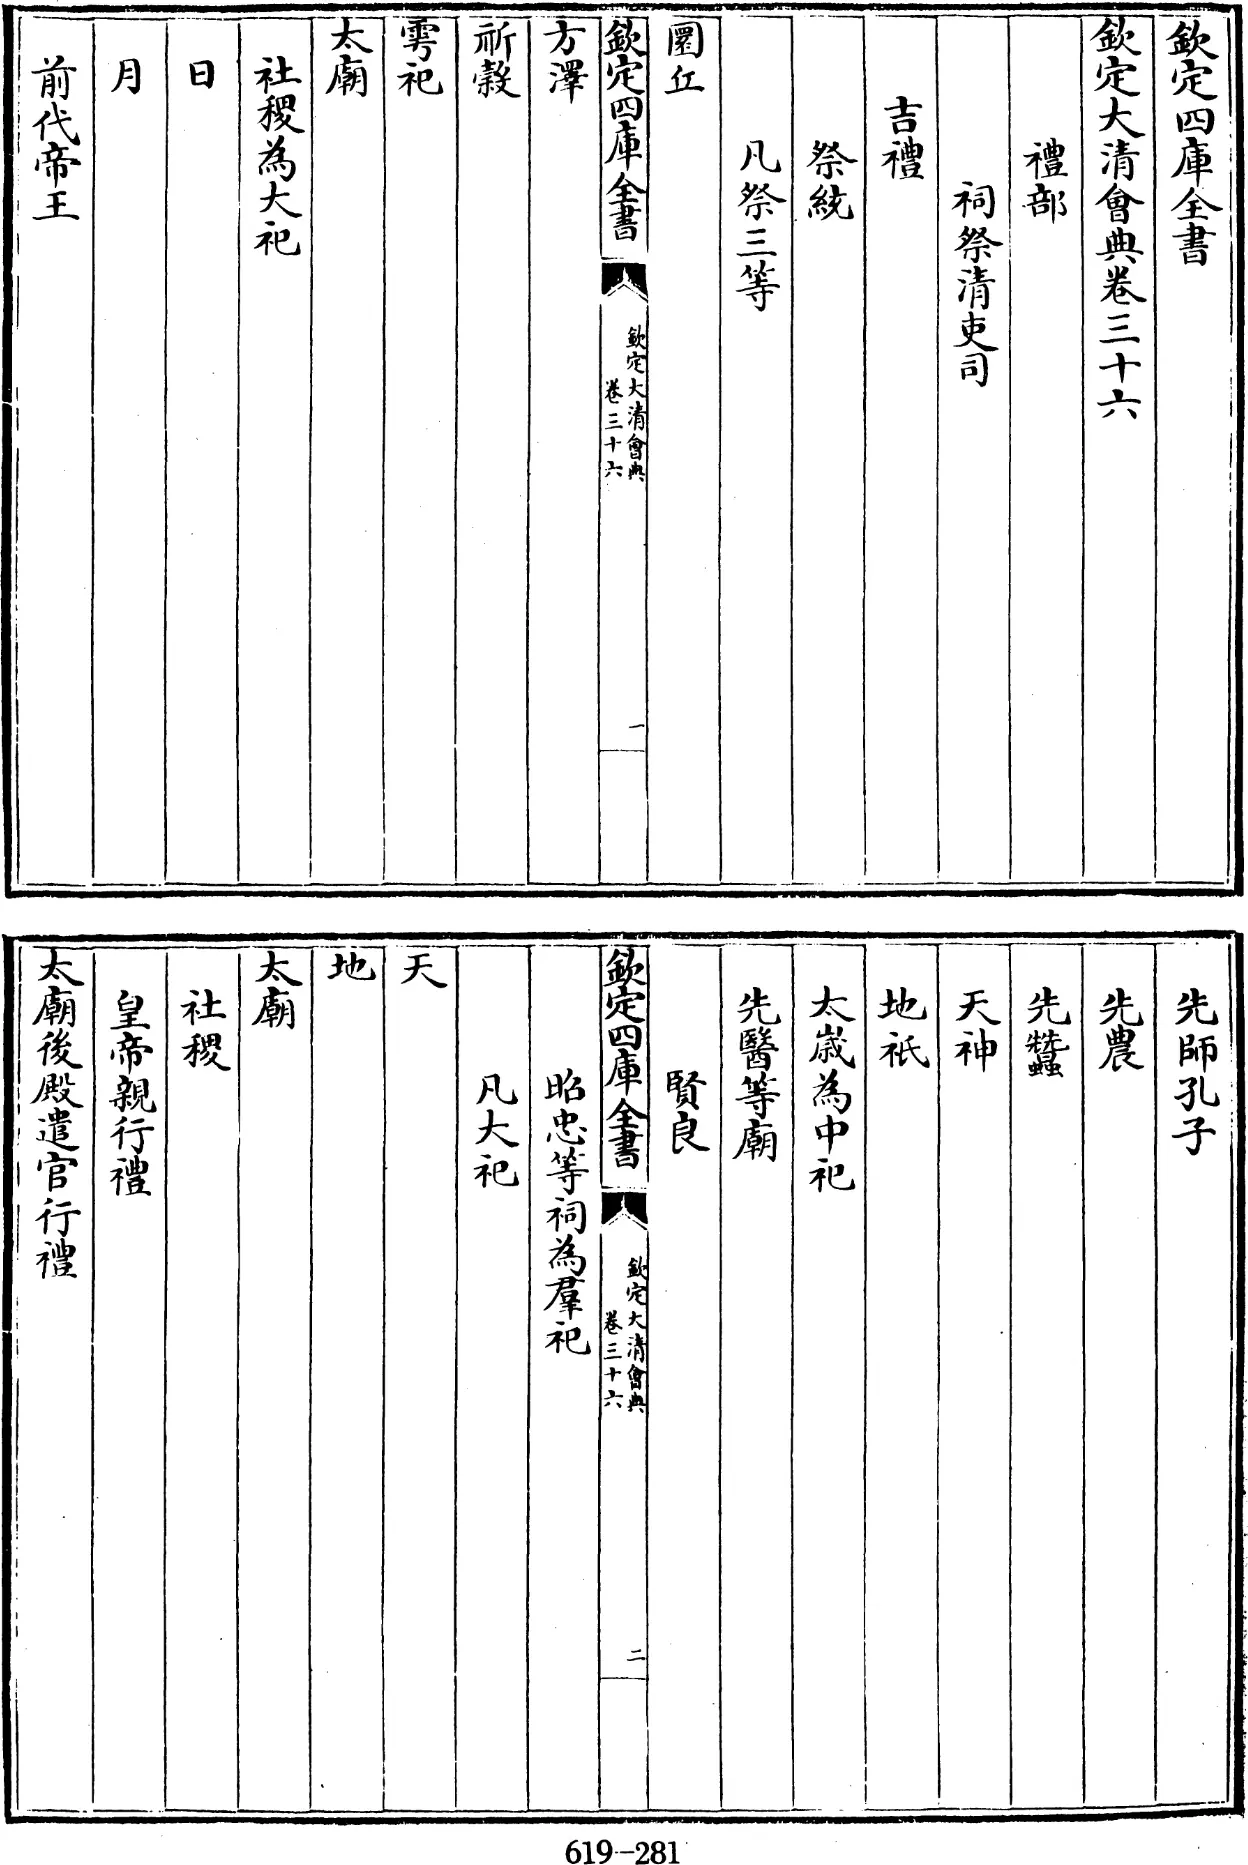 欽定四庫全書
欽定大清會典卷三十六
禮部
祠祭清吏司
吉禮
祭統
凡祭三等
圜丘
欽定四庫全書
欽定大清會典
卷三十六
一
方澤
祈穀
雩祀
太廟
社稷為大祀
日
月
前代帝王
先師孔子
先農
先蠶
天神
地祇
太歲為中祀
先醫等廟
賢良
欽定四庫全書
欽定大清會典
卷三十六
二
昭忠等祠為羣祀
凡大祀
天
地
太廟
社稷
皇帝親行禮
太廟後殿遣官行禮
619-281